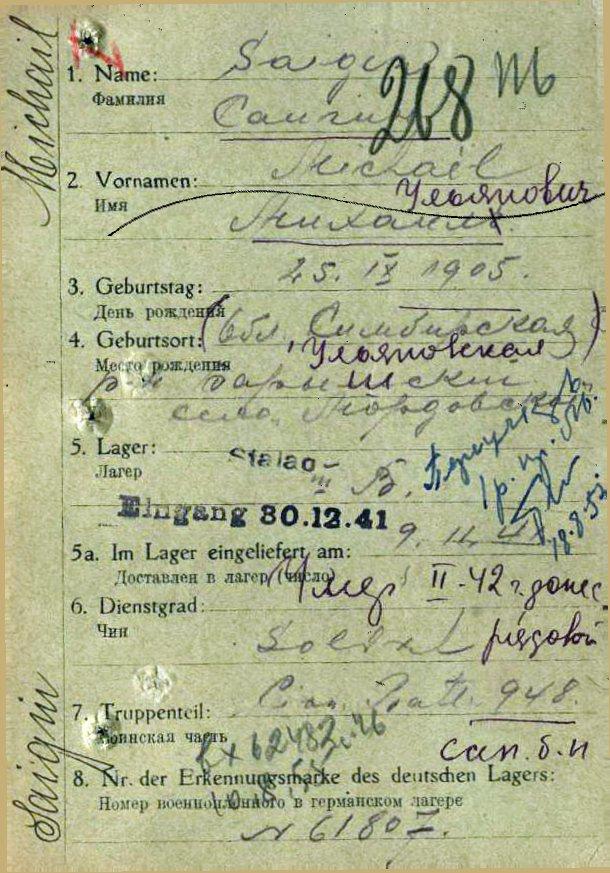 Michail
Saigin
268 m
1. Name: Saigin
Фамилия
Саигин
2. Vornamen: Michaël
Имя
Ульянович
Михаил
3. Geburtstag: 25. IX 1905.
День рождения
4. Geburtsort: (обл. Симбирская)
Место рождения
Ульяновская
р-н Барышский
село Мордовское
5. Lager: Stalag-
Лагер
III B.
Eingang 30.12.41
18.8.53
5a. Im Lager eingeliefert am: 9. II. 41
Доставлен в лагер (число)
Умер II-42 г. донес.
6. Dienstgrad: Soldat
Чин
рядовой
7. Truppenteil: 948.
Воинская часть
сап. б-н
вх 62482
8. Nr. der Erkennungsmarke des deutschen Lagers:
Номер военнопленного в германском лагере
N 61807.